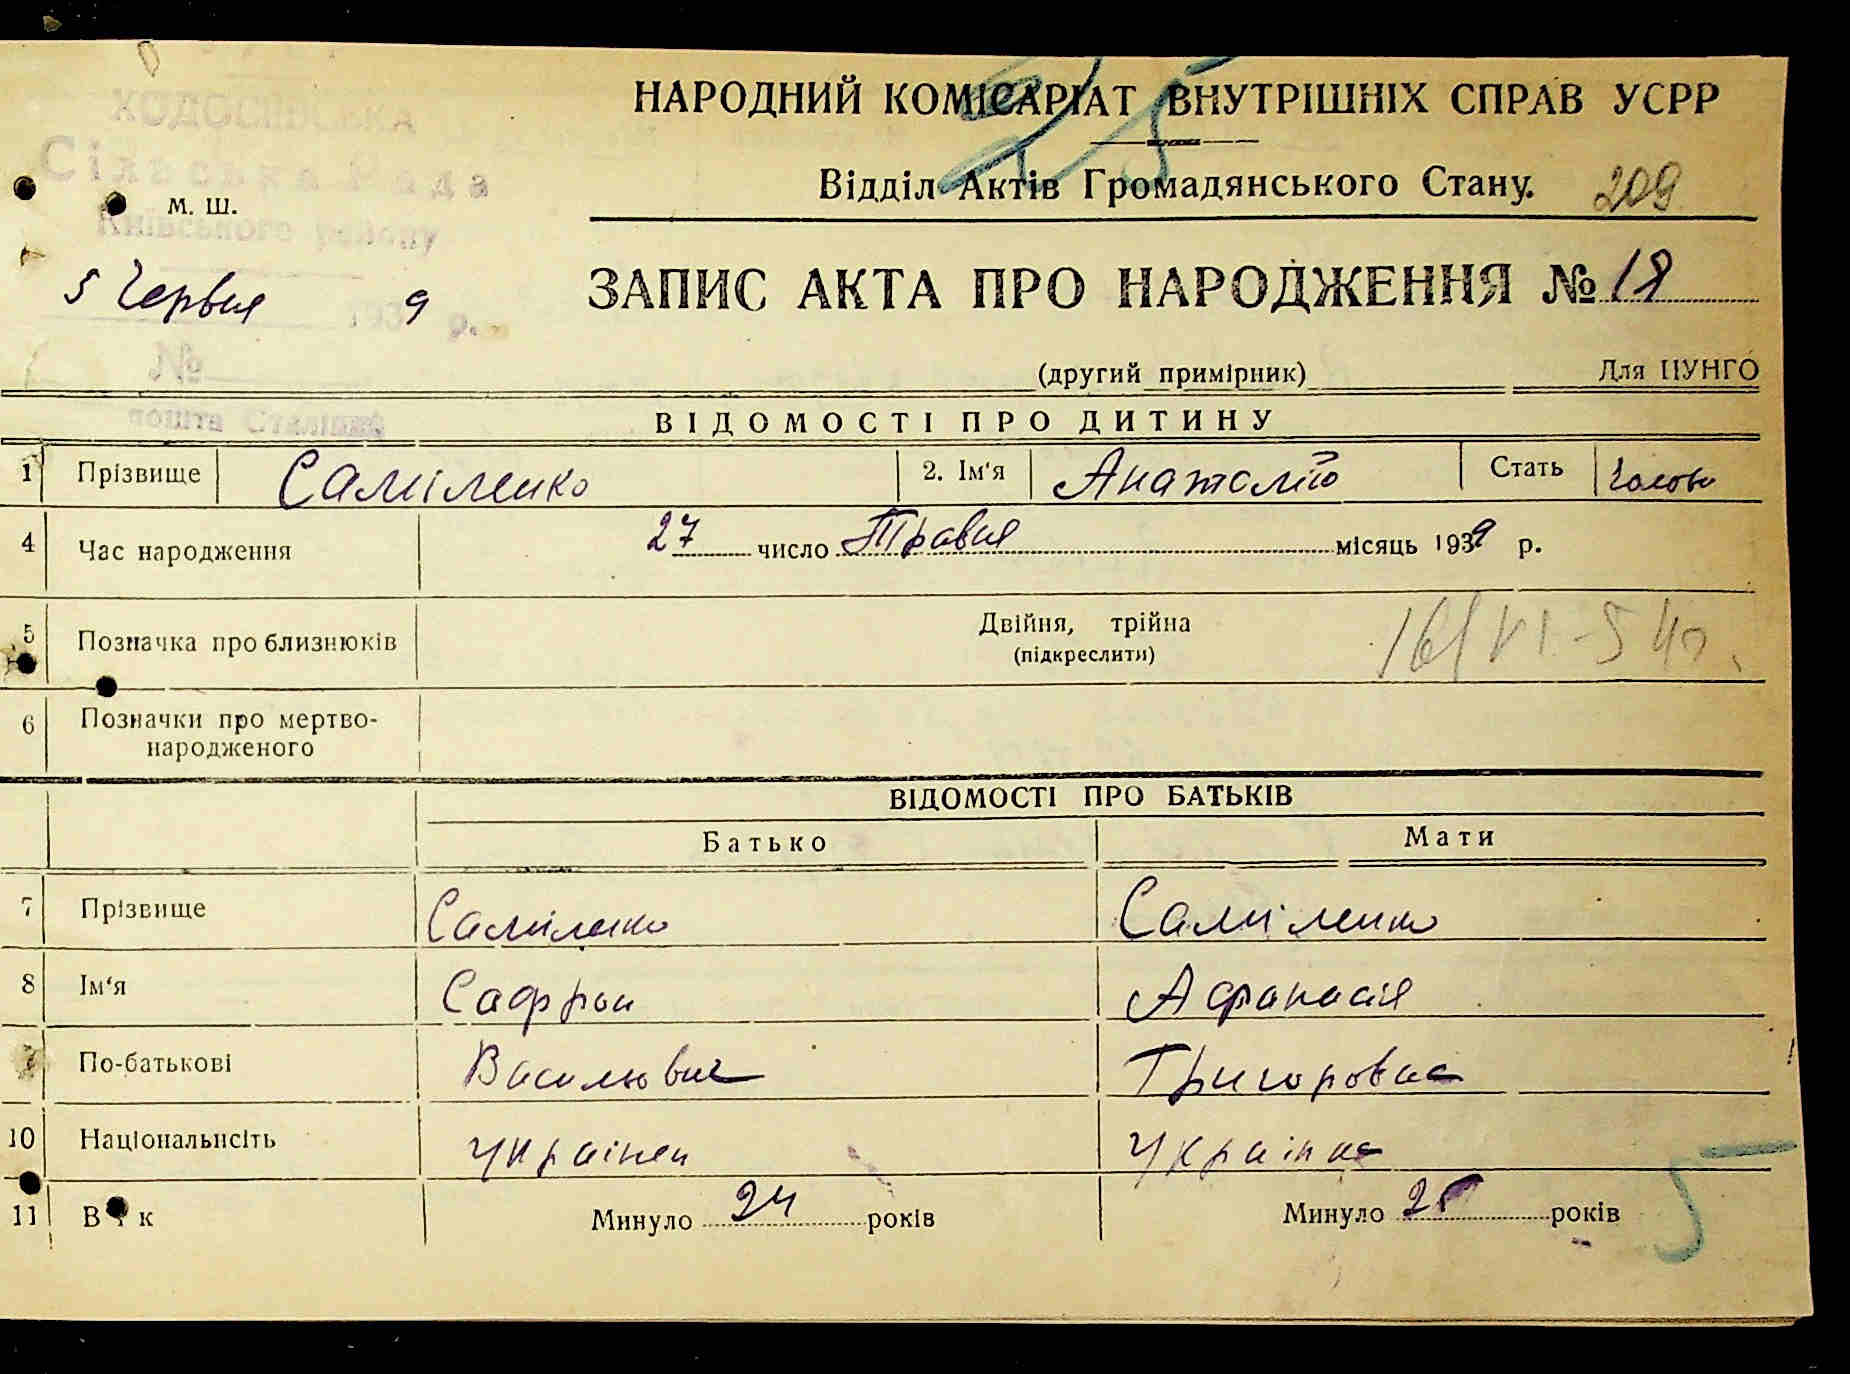 НАРОДНИЙ КОМІСАРІАТ ВНУТРІШНІХ СПРАВ УСРР
25
Відділ Актів Громадянського Стану.
209
ХОДОСІЇВСЬКА
Сільська Рада
Київського району
М. Ш.
5 Червня 1939 р.
№
пошта Сталінка
ЗАПИС АКТА ПРО НАРОДЖЕННЯ № 18
(другий примірник)
Для ЦУНГО
ВІДОМОСТІ ПРО ДИТИНУ
1 Прізвище Саміленко 2. Ім'я Анатолій Стать Чолов
4 Час народження 27 число Травня місяць 1939 р.
5 Позначка про близнюків Двійня, трійна
(підкреслити)
16/VI-54р.
6 Позначки про мертво-
народженого
ВІДОМОСТІ ПРО БАТЬКІВ
Батько Мати
7 Прізвище Саміленко Саміленко
8 Ім'я Сафрон Афанасія
По-батькові Васильович Григоровна
10 Національність українец українка
11 Вік Минуло 24 років Минуло 25 років
5